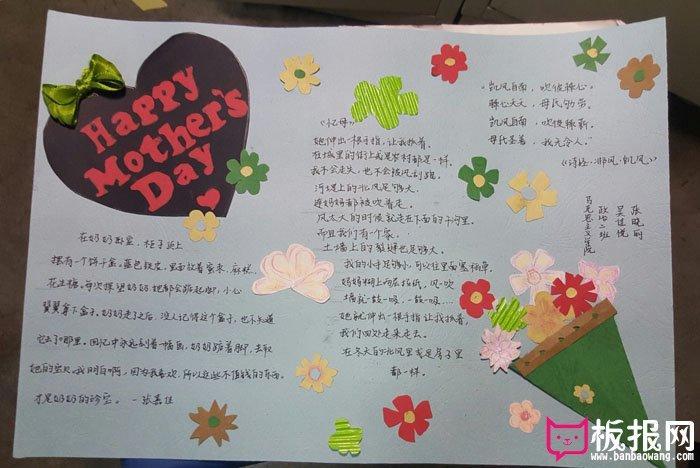 Happy
Mother's
Day
在奶奶那里，柜子顶上
摆有一个饼干盒。蓝色铁皮，里面放着蜜枣，麻糕，
花生糖。每次探望奶奶她都会踮起脚，小心
翼翼拿下盒子。奶奶走了之后，没人记得这个盒子，也不知道
它去了哪里。回忆中永远刻着一幅画，奶奶踮着脚，去取
她的宝贝。我明白啊，因为我喜欢，所以这些不值钱的东西，
才是奶奶的珍宝。 -张嘉佳
《忆母》
她伸出一根手指，让我抓着。
在城里的街上或是农村都是一样。
我不会走失，也不会被风刮跑。
河堤上的北风足够大，
连妈妈都被吹着走。
风太大的时候就走在下面的干河里。
而且我们有个家。
土墙上的裂缝也足够大。
我的小手足够小，可以往里面塞稻草。
妈妈糊上两层报纸，风吹
墙就一鼓一吸，一鼓一吸……
她就伸出一根手指让我抓着，
我们四处走来走去。
在冬天的北风里或是屋子里
都一样。
“凯风自南，吹彼棘心。
棘心夭夭，母氏劬劳。
凯风自南，吹彼棘薪。
母氏圣善，我无令人。”
《诗经·邶风·凯风》
张晓雨
吴佳悦
政治二班
马克思主义学院
板报网
www.banbaowang.com